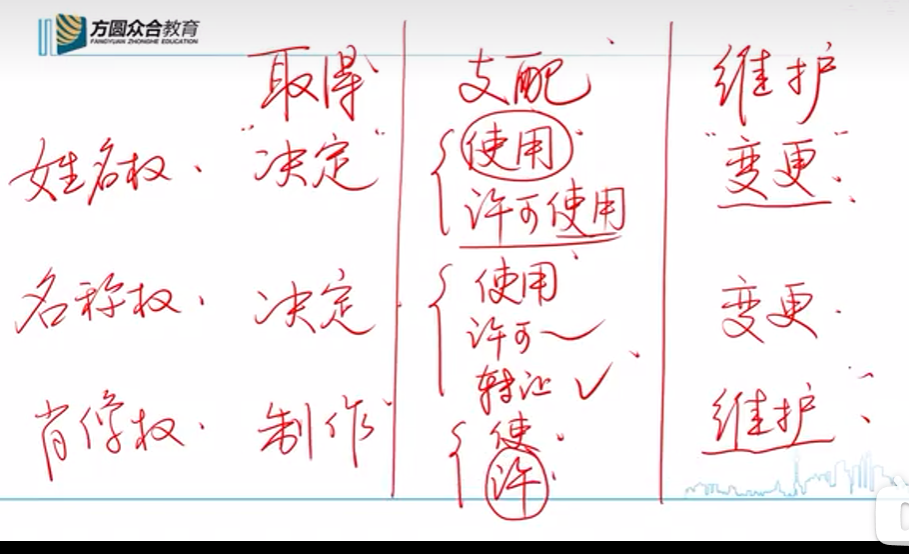 方圆众合教育
FANGYUAN ZHONGHE EDUCATION
取得 支配 维护
姓名权、 "决定" 使用 "变更"
许可使用
名称权. 决定. 使用 变更.
许可~
转让 ✓
肖像权. 制作 使 维护
许